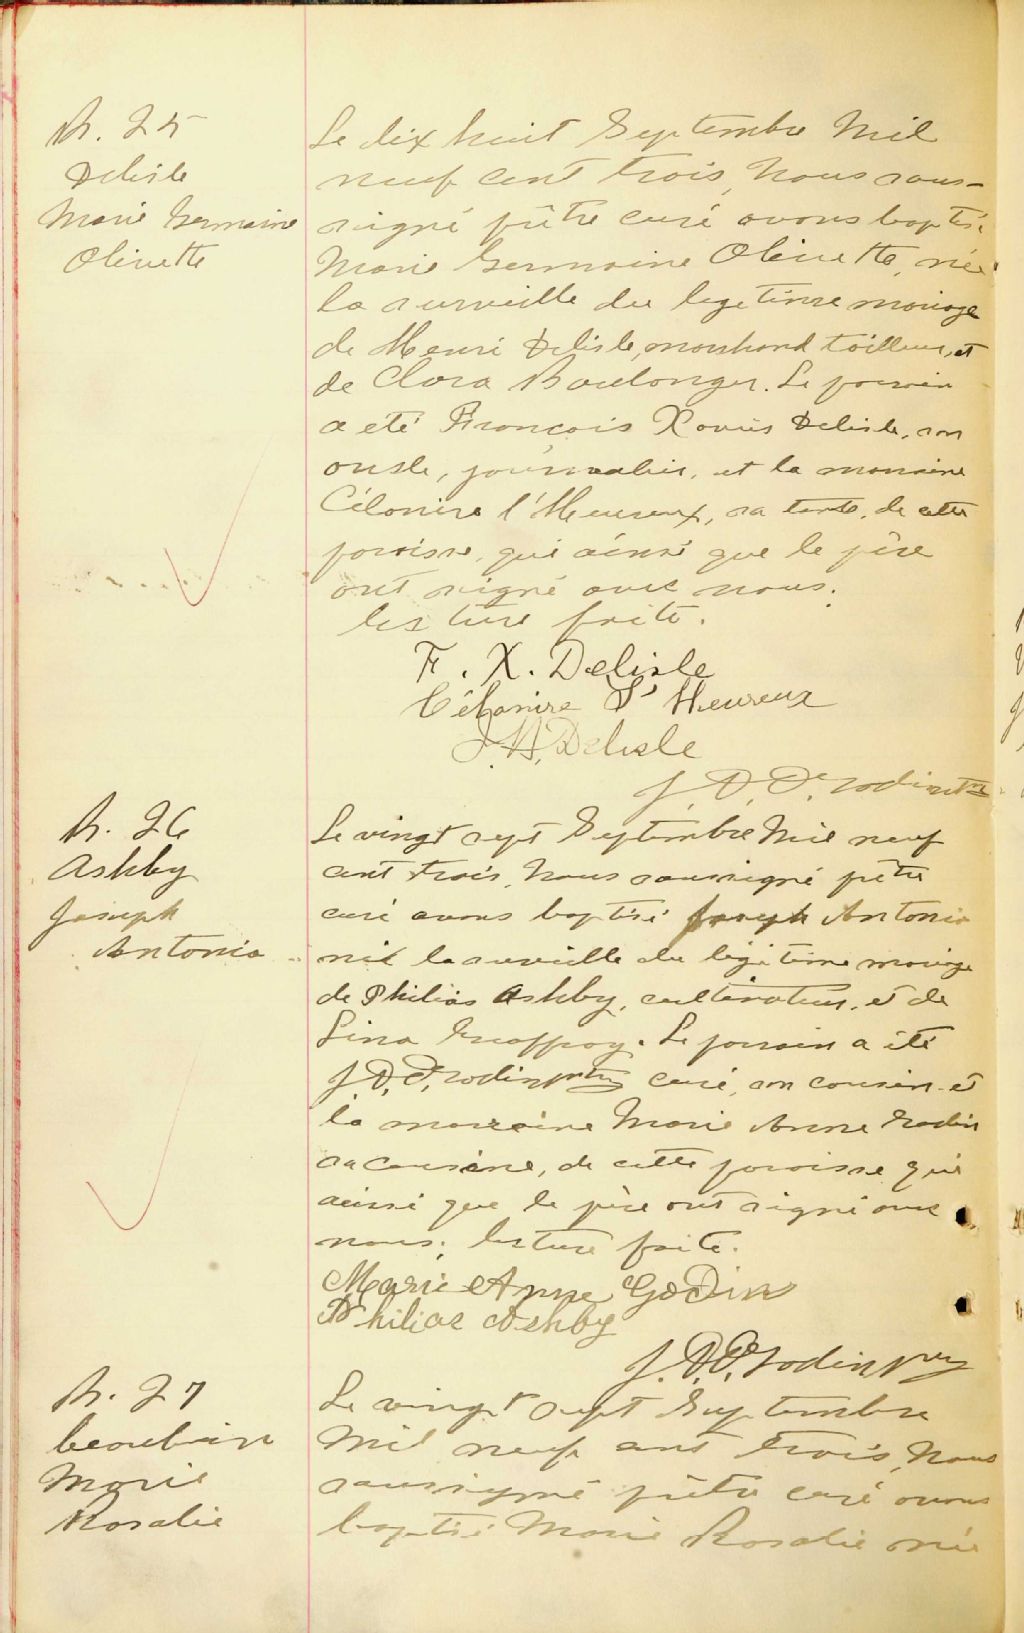 B. 25
Delisle
Marie Germaine
Olivette
Le dix huit Septembre Mil
neuf cent trois, Nous sous-
signé prêtre curé avons baptisé
Marie Germaine Olivette, née
la surveille du legitime mariage
de Henri Delisle, marchand tailleur, et
de Clara Boulanger. Le parrain
a été François Xavier Delisle, son
oncle, journalier, et la marraine
Célanire l'Heureux, sa tante, de cette
paroisse, qui ainsi que le père
ont signé avec nous.
lecture faite.
F. X. Delisle
Célanire L'Heureux
J. H. Delisle
J. D. D. Godin ptre
B. 26
Ashby
Joseph
Antonio
Le vingt sept Septembre Mil neuf
cent trois, Nous soussigné prêtre
curé avons baptisé Joseph Antonio
né la surveille du légitime mariage
de Philias Ashby, cultivateur, et de
Lina Geoffroy. Le parrain a été
J. D. D. Godin ptre curé, son cousin et
la marraine Marie Anne Godin
sa cousine, de cette paroisse qui
ainsi que le père ont signé avec
nous. lecture faite.
Marie Anne Godin
Philias Ashby
J. D. D. Godin ptre
B. 27
Beaubien
Marie
Rosalie
Le vingt sept Septembre
Mil neuf cent trois, Nous
soussigné prêtre curé avons
baptisé Marie Rosalie née